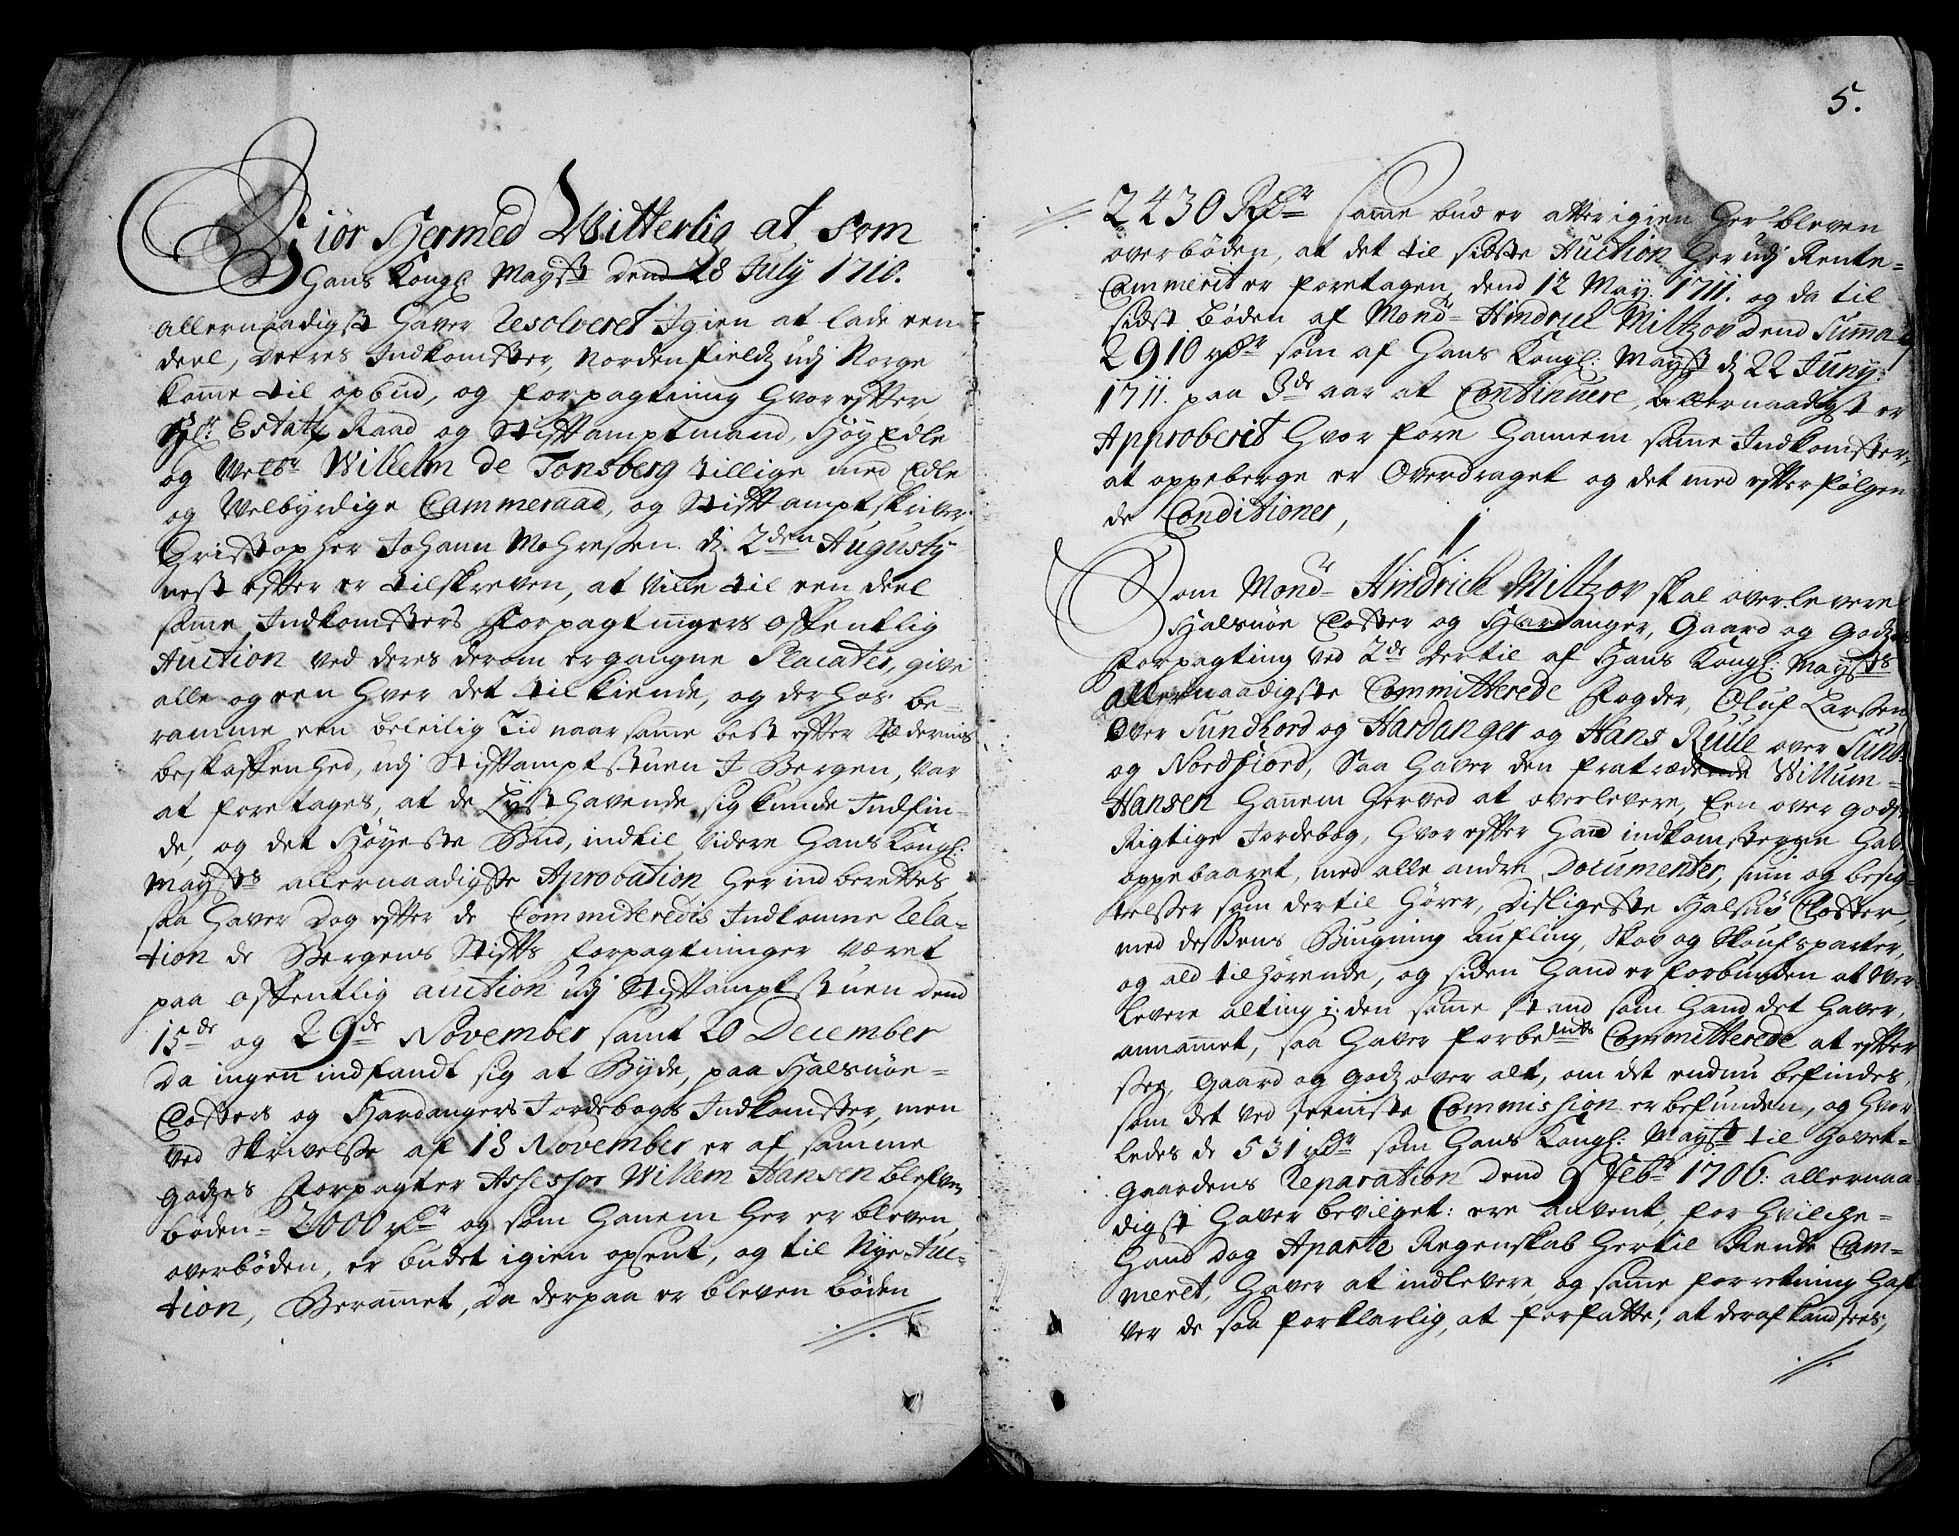 Giør Hermed Witterlig at Som
Hans Kongl: Mayst: dend 28 July 1710.
allernaadigst haver Resolveret Igien at lade een
deel, deeres Indkomster, Nordenfieldz udj Norge
komme til opbud, og forpagtning hvorefter
Hr: Estatz Raad og Stiftamptmand, Høy Edle
og Welbr: Wilhelm de Tonsberg tillige med Edle
og Welbyrdige Cammeraad, og Stiftamptskriver
Christopher Johann Mohressen. d: 2den Augusty
nest efter er tilskreven, at Ville til een deel
same Indkomsters Forpagtningers offentlig
Auction ved deres derom ergangne Placater, give
alle og een hver det tilkiende, og derhos be-
ramme een beleilig Tid naar samme best efter Stædernis
beskaffenhed, udj Stiftamptstuen J Bergen, var
at foretages, at de Lysthavende sig kunde Indfin-
de, og det Høyeste Bud, indtil Videre Hans Kongl:
Maysts allernaadigste Aprobation her indberettes,
saa haver dog efter de Commiteredis Indkomne Rela-
tion de Bergens Stifts forpagtninger Været
paa offentlig auction udj Stiftamptstuen dend
15de og 29de November samt 20 December
Da ingen indfandt sig at Byde, paa Halsnøe-
Closters og Hardangers Jordebogs Indkomster, men
ved Skrivelsse af 18 November er af samme
Godzes Forpagter Assessor Willem Hansen blefven
böden- 2000 rdr og som hanem her er bleven
overböden, er budet igien opsent, og til Nye Auc-
tion, Beramet, da derpaa er bleven böden
5.
2430 Rdr same bud er atter igien her bleven
overböden, at det til sidste Auction her udj Rente-
Cammerit er foretagen, dend 12 May. 1711. og da til
sidst böden af Monsr Hindrich Miltzov dend Summa
2910 rdr som af Hans Kongl: Mayst d: 22 Juny:
1711. paa 3de aar at Continuere, allernaadigst er
Approberit hvor fore hannem same Indkomster
at oppeberge er Overdraget og det med efterfølgen
de Conditioner,
1
Som Monsr Hindrich Miltzov skal overlevere
Halsnøe Closter og Hardanger, Gaard og Godzes
Forpagting ved 2de dertil af Hans Kongl: Maysts
allernaadigste Committerede Fogder, Oluf Larssen
over Sundhord og Hardanger og Hans Ruue over Sund
og Nordfiord, Saa haver den fratrædende Willum-
Hansen hannem herved at overlevere, Een over godz
Rigtige Jordebog, hvor efter hand indkomsterne hav
oppebaaret, med alle andre Documenter, siun og besig
telsser som dertil hører, disligeste Halsnøe Closter,
med dessens Biugning aufling, Skov og Skoufsparter,
og ald tilhörende, og siden hand er forbunden at Over
levere alting i den same stand som hand det haver
annammet, saa haver forbemte Committerede at efter
see, Gaard og Godz over alt, om det endnu befindes,
som det ved seeniste Commission er befunden, og hvor
ledes de 531 rdr som Hans Kongl: Mayst til hovet-
gaardens Reparation dend 9 Febr: 1706: allernaa
digst haver bevilget: ere anvent, for hvilche-
hand dog Aparte Regenskab hertil Rente Cam-
meret, haver at indlevere, og same forretning haf
ver de saa forklarlig, at forfatte, at deraf kand sees,